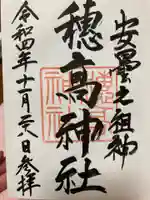 安曇之祖神
穂高神社
令和四年十一月六日参拝